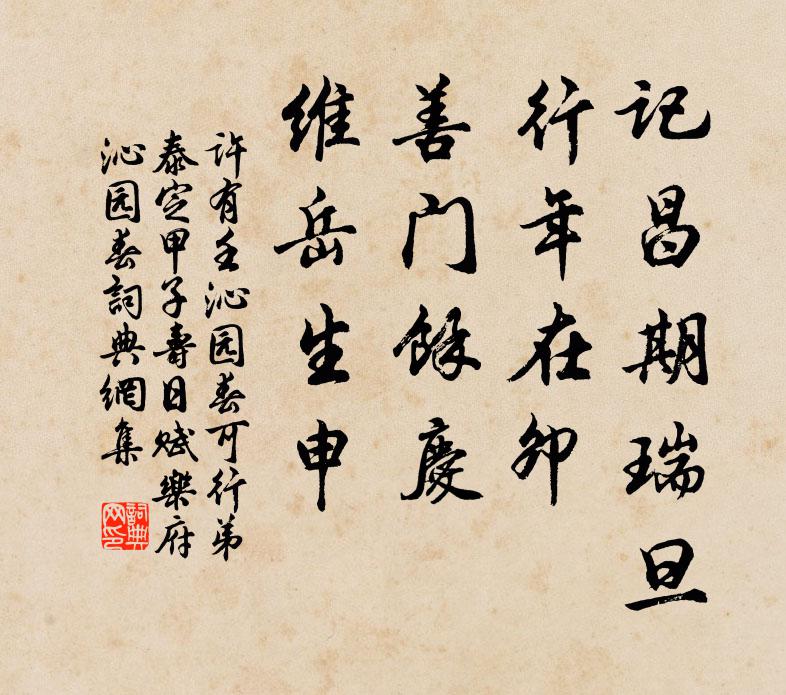 记昌期瑞旦
行年在卯
善门馀慶
维岳生申
许有壬沁园春可行弟
泰定甲子壽日赋樂府
沁园春詞典網集
詞典网印